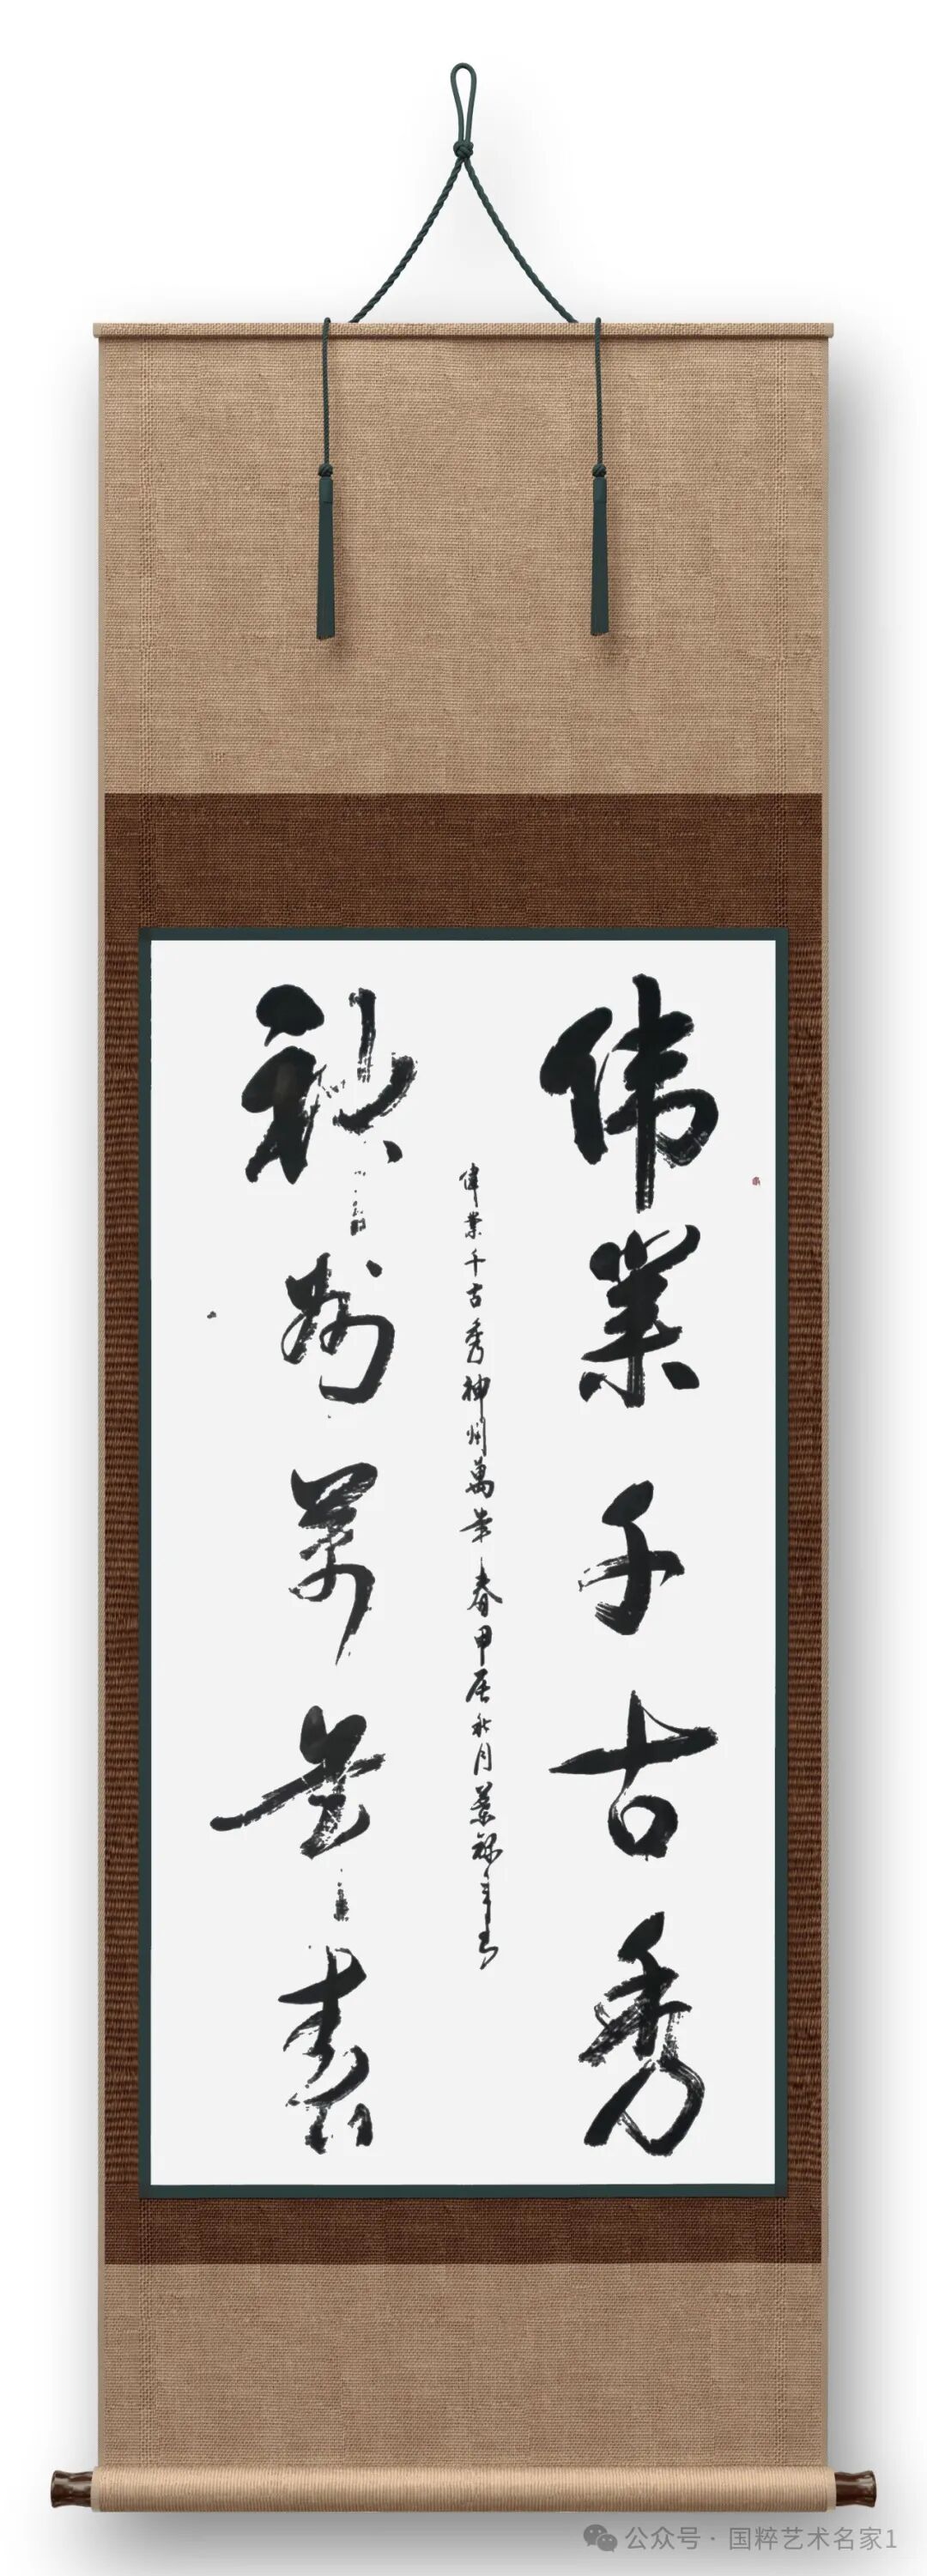 伟業千古秀
神州萬年春
偉業千古秀神州萬年春甲辰秋月
公众号·国粹艺术名家1